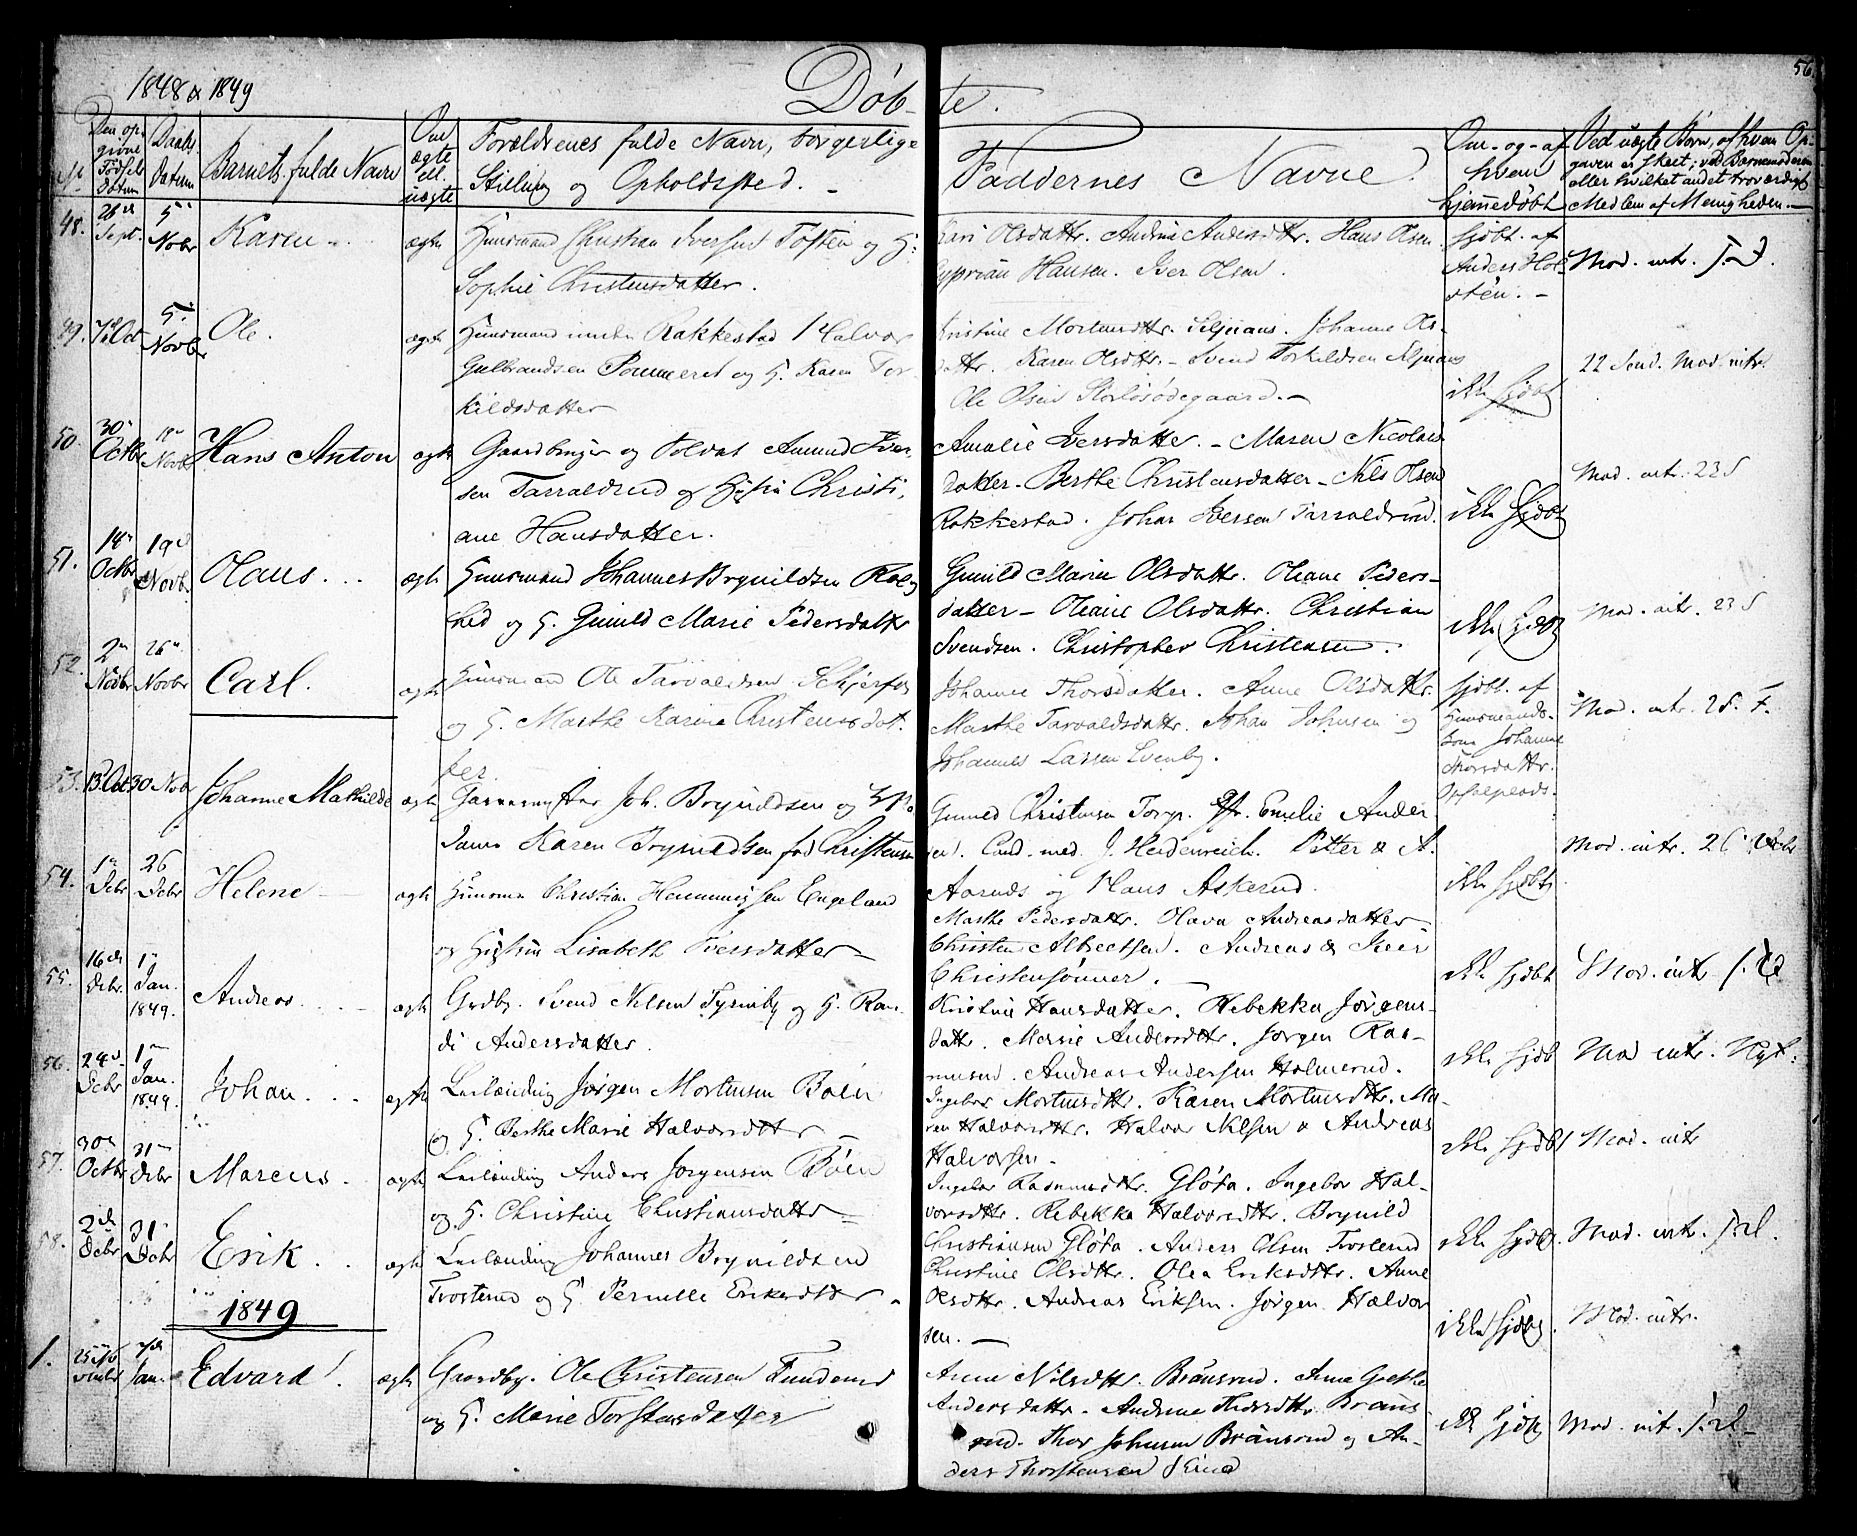 1848 & 1849
Døb- te.
56
No
Den op-
givne
Fødsels
Datum
Daabs
Datum
Barnets fulde Navn
Om
ægte
ell.
uægte
Forældrenes fulde Navn, borgerlige
Stilling og Opholdssted. -
Faddernes Navne
Om - og - af
hvem
hjemmedøbt
Ved uægte Børn, af hvem Op-
gaven er skeet; ved Barnemoderen
eller hvilket andet troværdigt
Medlem af Menigheden. -
48.
26de
Sept.
5te
Novbr
Karen
ægte
Huusmand Christian Iversen Toften og H:
Sophie Christensdatter.
Kari Olsdattr. Andrine Andersdttr. Hans Olsen
Cyprian Hansen. Iver Olsen.
hjdbt. af
Anders Hol-
stën. -
Mod. intr.
49.
7de Oct
5te
Novbr
Ole.
ægte
Huusmand under Rakkestad Halvor
Gulbrandsen Pommeret og H. Karen Tor-
kildsdatter
Kristine Mortensdttr. Seljuaas. Johanne Ols-
dattr. Karen Olsdttr. - Svend Torkildsen Seljuaas
Ole Olsen
ikke hjdbt
22 Sond. Mod. intr.
50.
30te
Octbr
Novbr
Hans Anton
ægte
Gaardbruger og Soldat Amund Iver-
sen Tarraldrud og Hustru Christi-
ane Hansdatter.
Amalie Iversdatter. - Maren Nicolais
datter - Berthe Christensdatter - Nils Olsen
Rakkestad. Johan Iversen Tarraldrud.
ikke hjdbt
Mod. intr. 23 S
51.
18de
Octbr
19de
Novbr
Olaus. . .
ægte
Huusmand Johannes Brynildsen
og H. Gunild Marie Pedersdatter
Gunild Marie Olsdattr. Oliane Peders-
datter - Oliane Olsdattr. Christian
Svendsen. Christopher Christensen.
ikke hjdbt
Mod. intr. 23 S
52.
2den
Novbr
26de
Novbr
Carl.
ægte
Huusmand Ole Tarvaldsen
og H. Marthe Karine Christensdat-
ter.
Johanne Thorsdatter. Anne Olsdattr.
Marthe Tarvaldsdattr. Johan Johnsen og
Johannes Larsen Svenby.
hjdbt. af
Huusmands-
kone Johanne
Thorsdattr.
Mod. intr.
53.
13 Oct
30 Novbr
Johanne Mathilde
ægte
Garvermester Joh. Brynildsen og
Karen Brynildsen fød Christensen
Gunild Christensen Torp. Jfr. Emelie Ander
sen. Cand. med. J. Heidenreich. Petter & A.
Aarnæs og Hans Askerud.
ikke hjdbt
Mod. intr. 26 Decbr
54.
1ste
Decbr
26
Decbr
Helene -
ægte
Huusmd Christian Hemmingsen Engeland
og Hustru Lisabeth Iversdatter -
Marthe Pedersdattr. Olava Andreasdatter
Christen Albrectsen. Andreas & Iver
Christensønner. -
ikke hjdbt
Mod. intr.
55.
16de
Decbr.
1te
Jan.
1849.
Andreas. . . .
ægte
Grdbr. Svend Nilsen og H. Ran-
di Andersdatter.
Kristine Hansdatter. Rebekka Jørgens-
dattr. Marie Andersdttr. Jørgen Ras-
musen. Andreas Andersen Holmerud.
ikke hjdbt
Mod intr. Nyt.
56.
24de
Decbr
1te
Jan.
1849.
Johan. . . .
ægte
Leilænding Jørgen Mortensen Bøen
og H. Berthe Marie Halvorsdttr
Ingebor Mortensdttr. Karen Mortensdttr. Ma-
ren Halvorsdttr. Halvor Nilsen & Andreas
Halvorsen.
ikke hjdbt
Mod. intr
57.
30de
Octbr
31te
Decbr
Marcus.
ægte
Leilænding Anders Jørgensen Bøen
og H. Christine Christiansdattr
Ingebor Rasmusdttr. Gløta. Ingebor Hal-
vorsdttr. Rebekka Halvorsdttr. Brynild
Christiansen Gløta. Anders Olsen Trosterud
ikke hjdbt.
Mod. intr.
58.
2de
Decbr
31te
Decbr
Erik. .
ægte
Leilænding Johannes Brynildsen
Trosterud og H. Pernille Eriksdttr.
Christine Olsdttr. Olea Eriksdttr. Anne
Olsdttr. Andreas Eriksen. Jørgen Halvor
sen. -
ikke hjdbt.
Mod. intr.
1849
1.
7de
Jan.
Edvard
ægte
Gaardbr. Ole Christensen
og H. Marie Torstensdatter
Anne Nilsdttr. Brånsrud. Anne Grethe
Andersdattr. Andrine Thorsdttr. Bråns-
rud. Thor Johnsen Brånsrud og An-
ders Thorstensen
ikke hjdbt
Mod. intr.